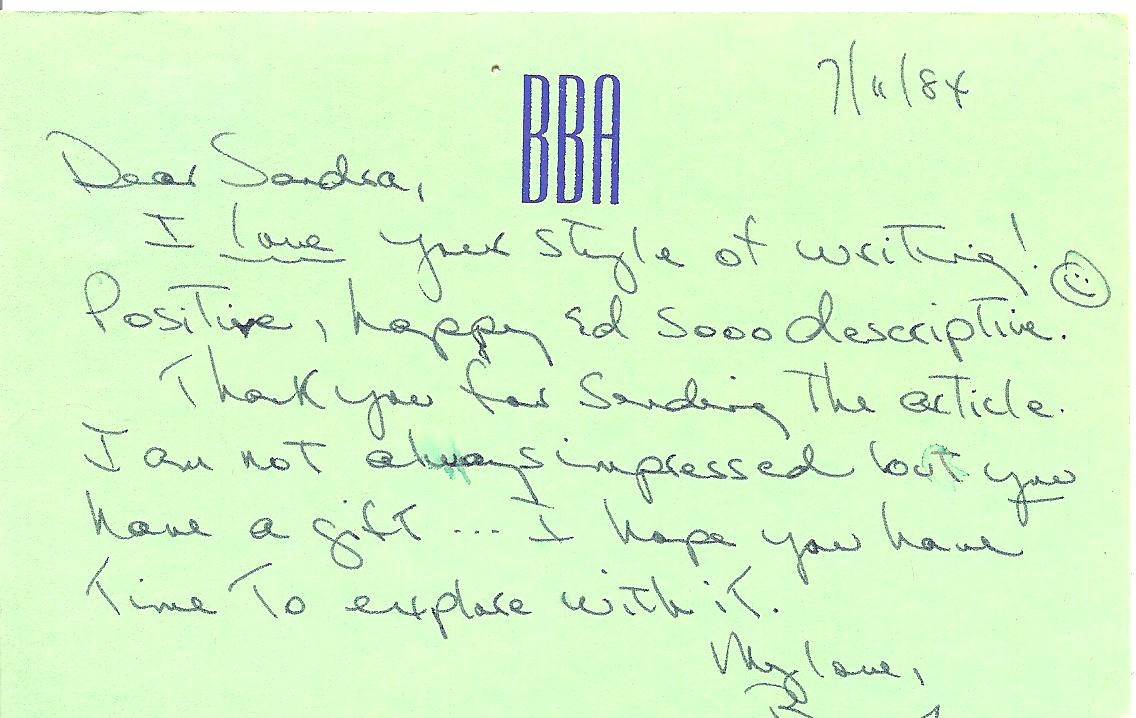 7/11/84
BBA
Dear Sandra,
I love your style of writing!
Positive, happy Ed sooo descriptive.
Thank you for sending the article.
I am not always impressed but you
have a gift ... I hope you have
time to explore with it.
My love,